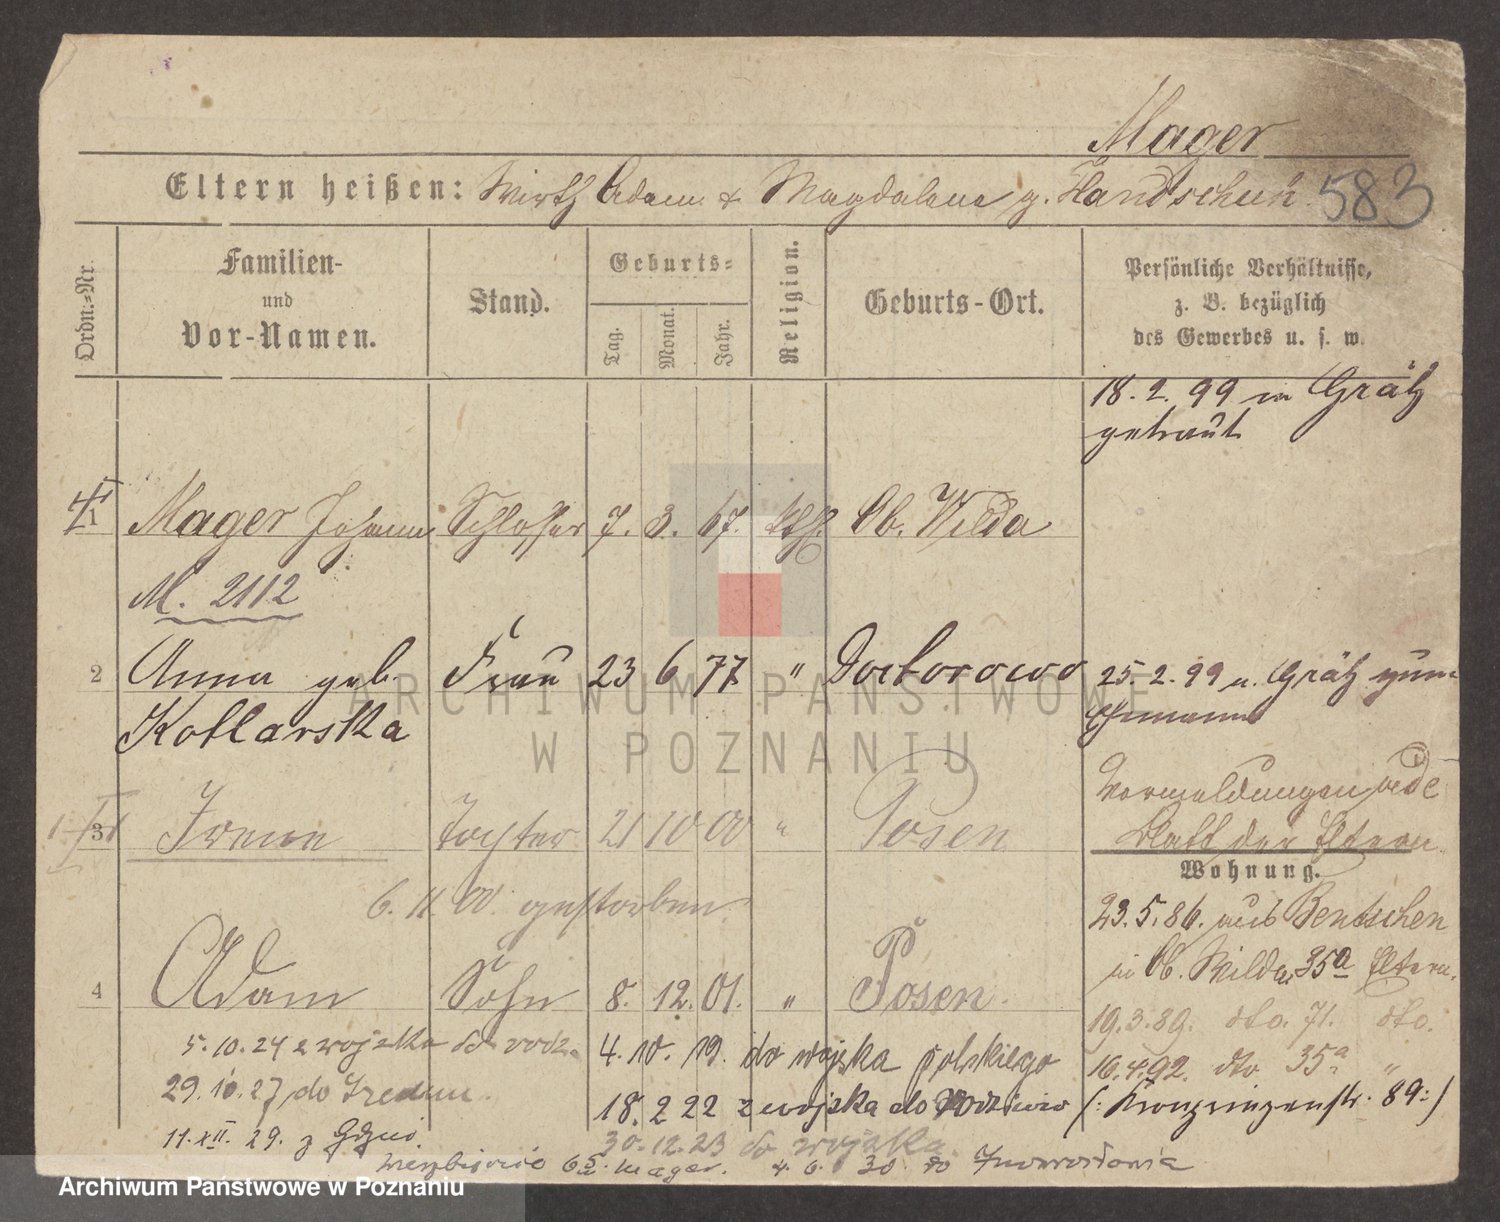 Mager
Eltern heißen: Wirth Adam & Magdalena g. Handschuh 583
Ordn.=Nr.
Familien-
und
Vor-Namen.
Stand.
Geburts=
Tag.
Monat.
Jahr.
Religion.
Geburts-Ort.
Persönliche Verhältnisse,
z. B. bezüglich
des Gewerbes u. s. w.
18. 2. 99 in Grätz
getraut
1 Mager Johann Schlosser 7. 3. 67. kth. Ob. Wilda
M. 2112
2 Anna geb. Frau 23 6 77 " Doctorowo
Kotlarska
25. 2. 99 v. Grätz zum
Ehemann
3 Irene Tochter 21 10 00 " Posen
Vermeldungen
Blatt der Eltern
6. 11. 00. gestorben.
Wohnung.
23. 5. 86. aus Bentschen
in Ob. Wilda 35a Eltern.
4 Adam Sohn 8. 12. 01. " Posen
19. 3. 89. dto. 71. dto.
16. 4. 92. dto 35a "
(: Kronprinzenstr. 89 :)
5. 10. 24 z wojska do rodz.
4. 10. 19. do wojska polskiego
29. 10. 27 do
18. 2 22 z wojska do rodziców
11. XII. 29. z Gdyni.
30. 12. 23 do wojska
Mager. 4. 6. 30 do Inowrocławia
ARCHIWUM PAŃSTWOWE
W POZNANIU
Archiwum Państwowe w Poznaniu